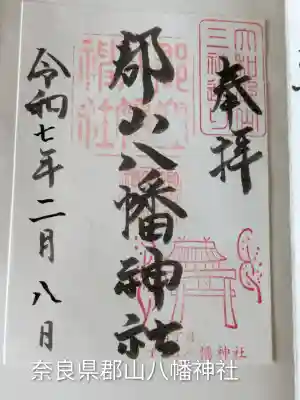 奉拝
郡山八幡神社
令和七年二月八日
八幡神社
奈良県郡山八幡神社